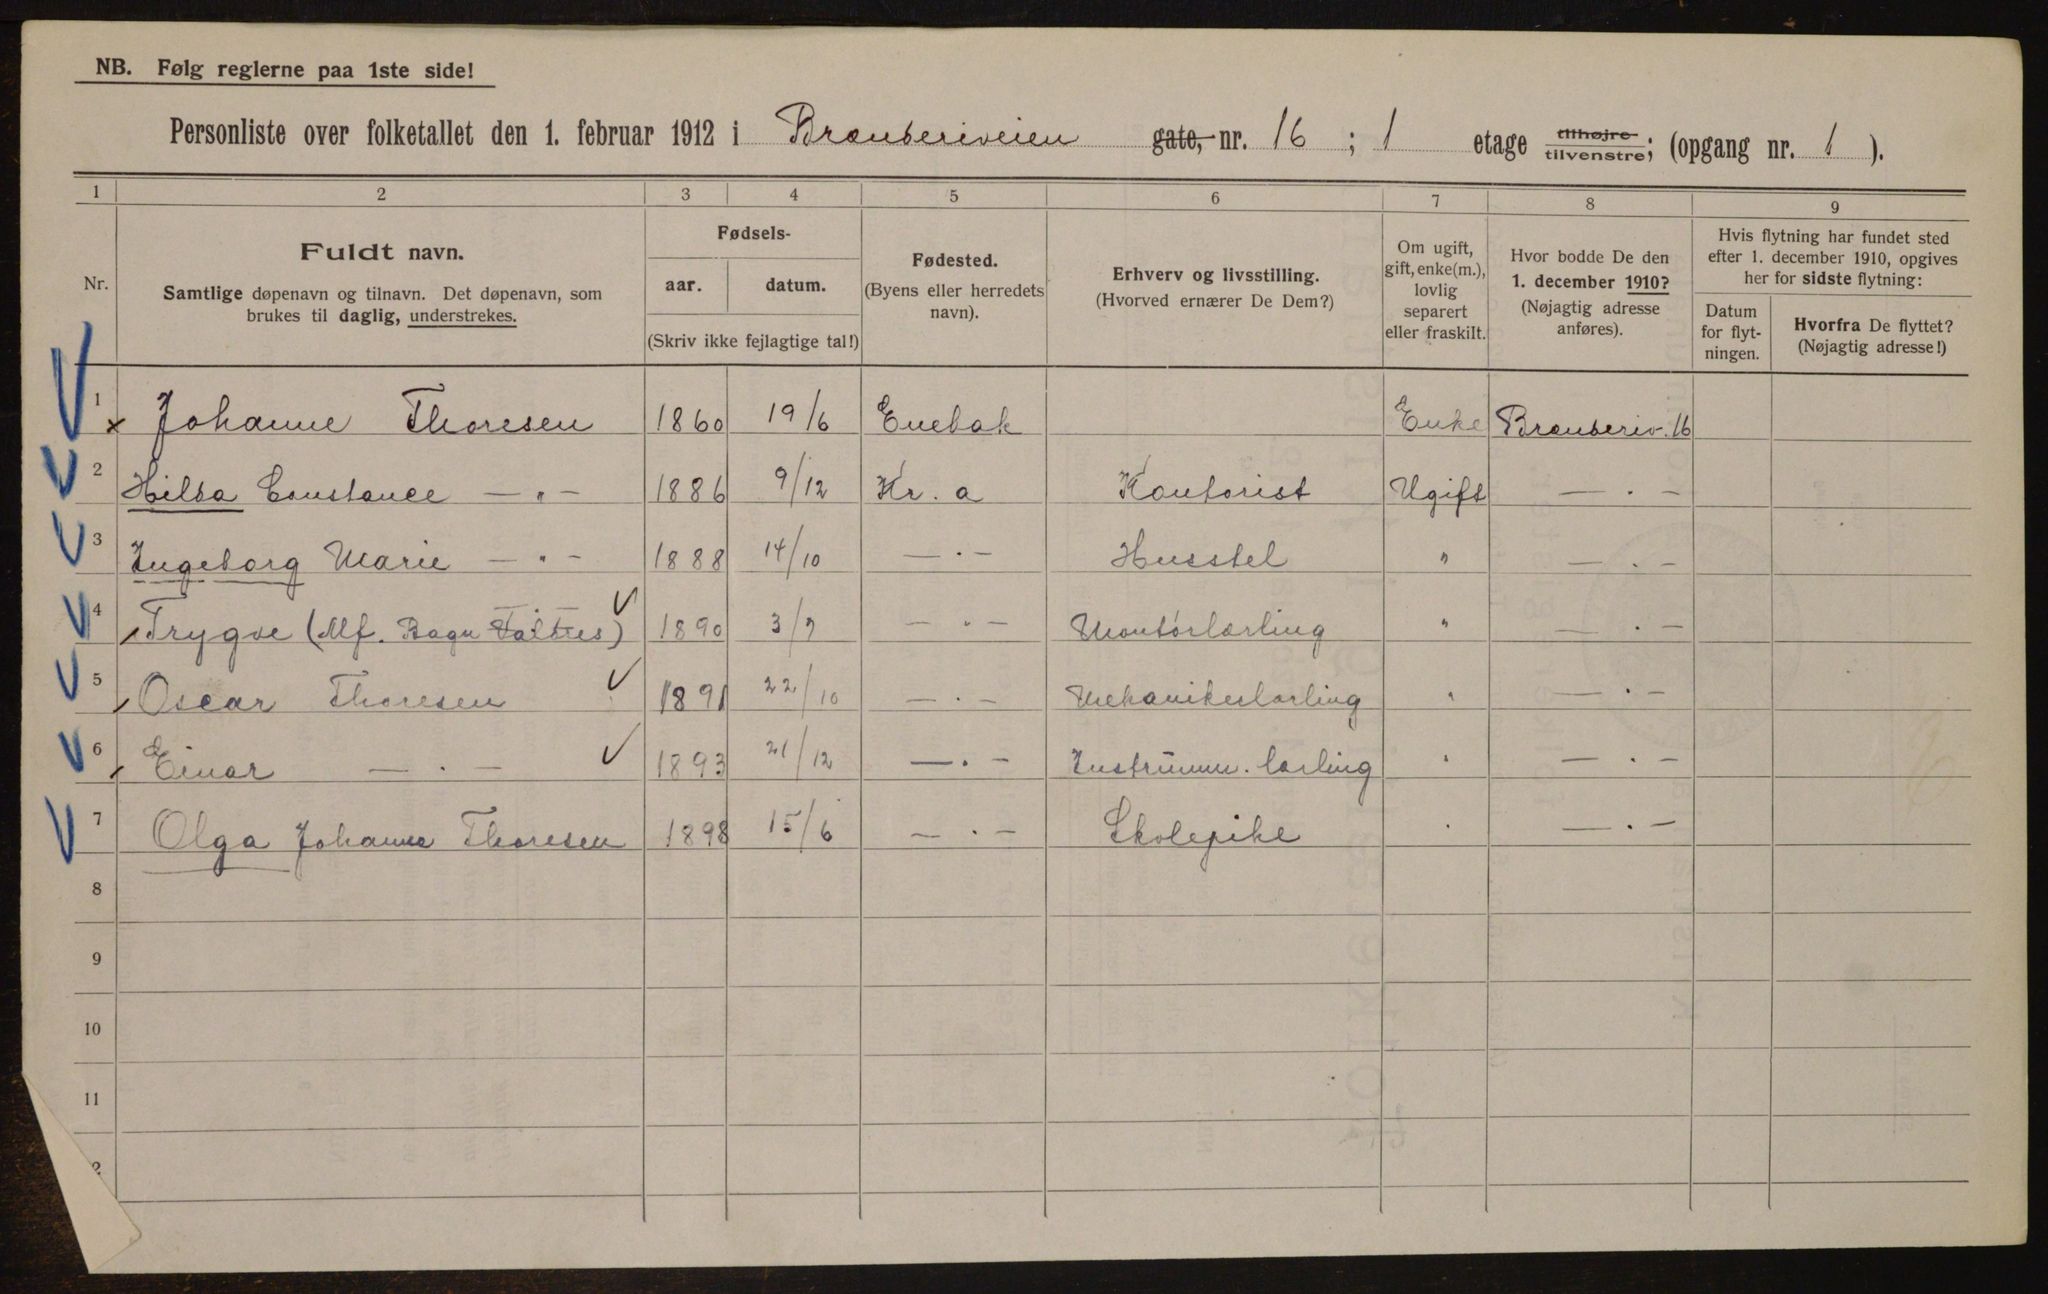 NB. Følg reglerne paa 1ste side!
Personliste over folketallet den 1. februar 1912 i Brænderiveien gate, nr. 16 ; 1 etage tilhøjre tilvenstre; (opgang nr. 1 ).
1 2 3 4 5 6 7 8 9
Nr.
Fuldt navn.
Samtlige døpenavn og tilnavn. Det døpenavn, som
brukes til daglig, understrekes.
Fødsels-
aar. datum.
(Skriv ikke fejlagtige tal!)
Fødested.
(Byens eller herredets
navn).
Erhverv og livsstilling.
(Hvorved ernærer De Dem?)
Om ugift,
gift, enke(m.),
lovlig
separert
eller fraskilt.
Hvor bodde De den
1. december 1910?
(Nøjagtig adresse
anføres).
Hvis flytning har fundet sted
efter 1. december 1910, opgives
her for sidste flytning:
Datum
for flyt-
ningen.
Hvorfra De flyttet?
(Nøjagtig adresse!)
1 x Johanne Thoresen 1860 19/6 Enebak Enke Brænderiv. 16
2 Hilda Constance — " — 1886 9/12 Kr. a Kontorist Ugift — " —
3 Ingeborg Marie — " — 1888 14/10 — " — Husstel " — " —
4 Trygve (Mf. Bagn Valdres) 1890 3/7 — " — Montørlærling " — " —
5 Oscar Thoresen 1891 22/10 — " — Mekanikerlærling " — " —
6 Einar — " — 1893 21/12 — " — Instrumm. lærling " — " —
7 Olga Johanne Thoresen 1898 15/6 — " — Skolepike " — " —
8
9
10
11
2